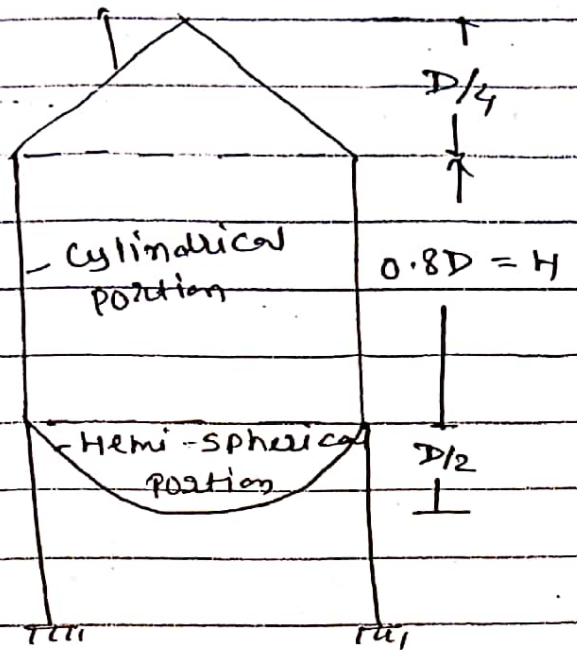 D/4
Cylindrical
portion
0.8D = H
Hemi-spherical
portion
D/2